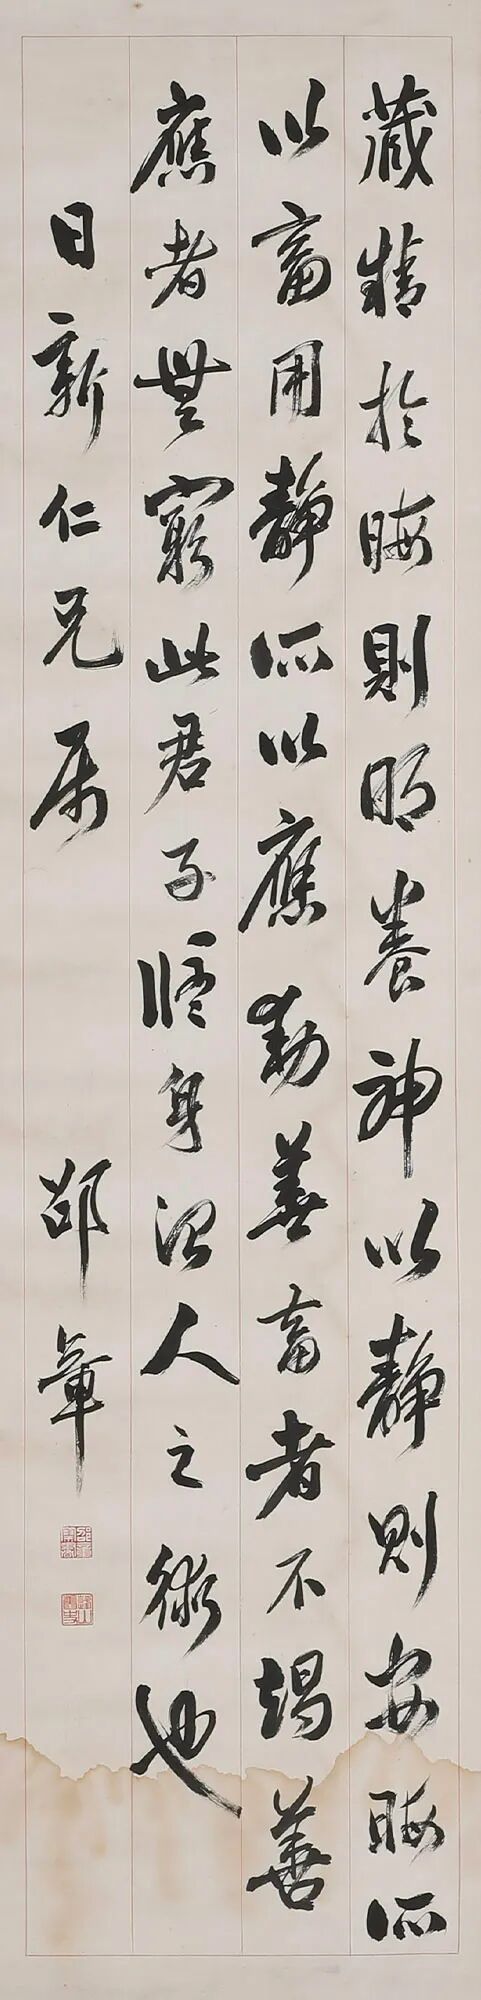 藏精於晦則明養神以靜則安晦所
以畜用靜所以應動善畜者不竭善
應者無窮此君子脩身治人之術也
日新仁兄屬
邵章